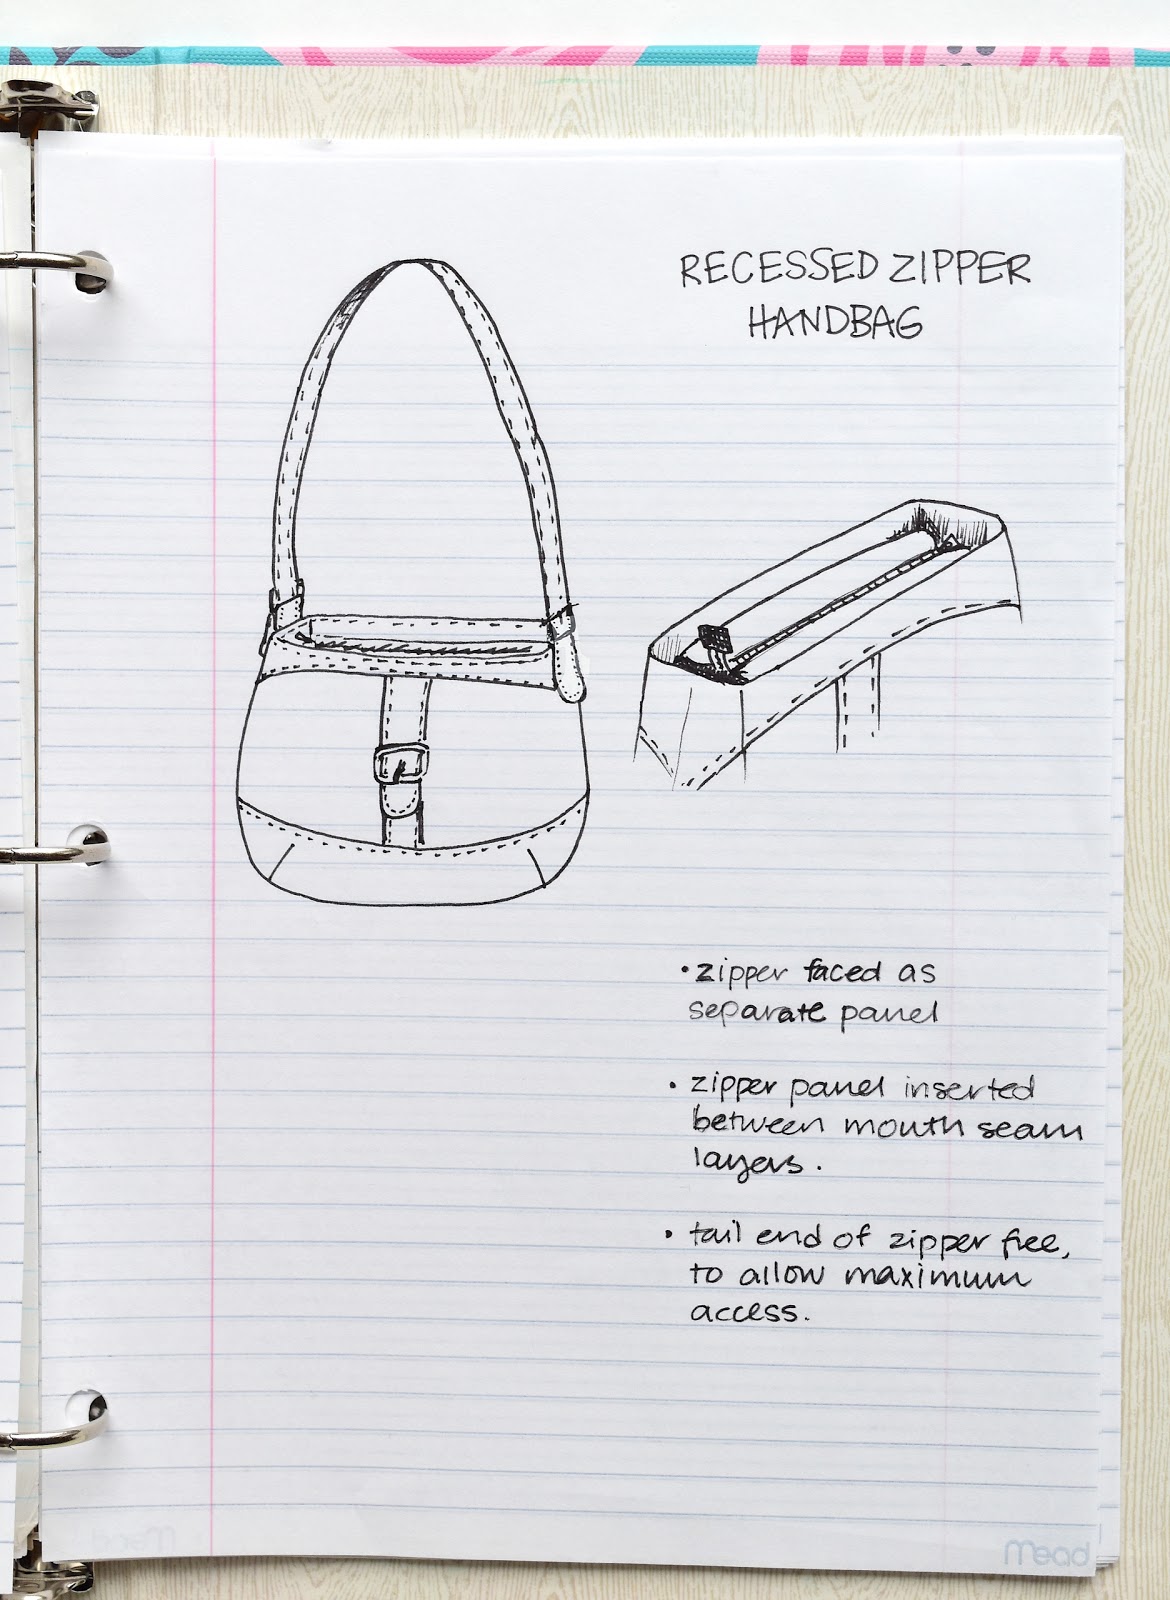 RECESSED ZIPPER
HANDBAG
• zipper faced as
separate panel
• zipper panel inserted
between mouth seam
layers.
• tail end of zipper free,
to allow maximum
access.
Mead